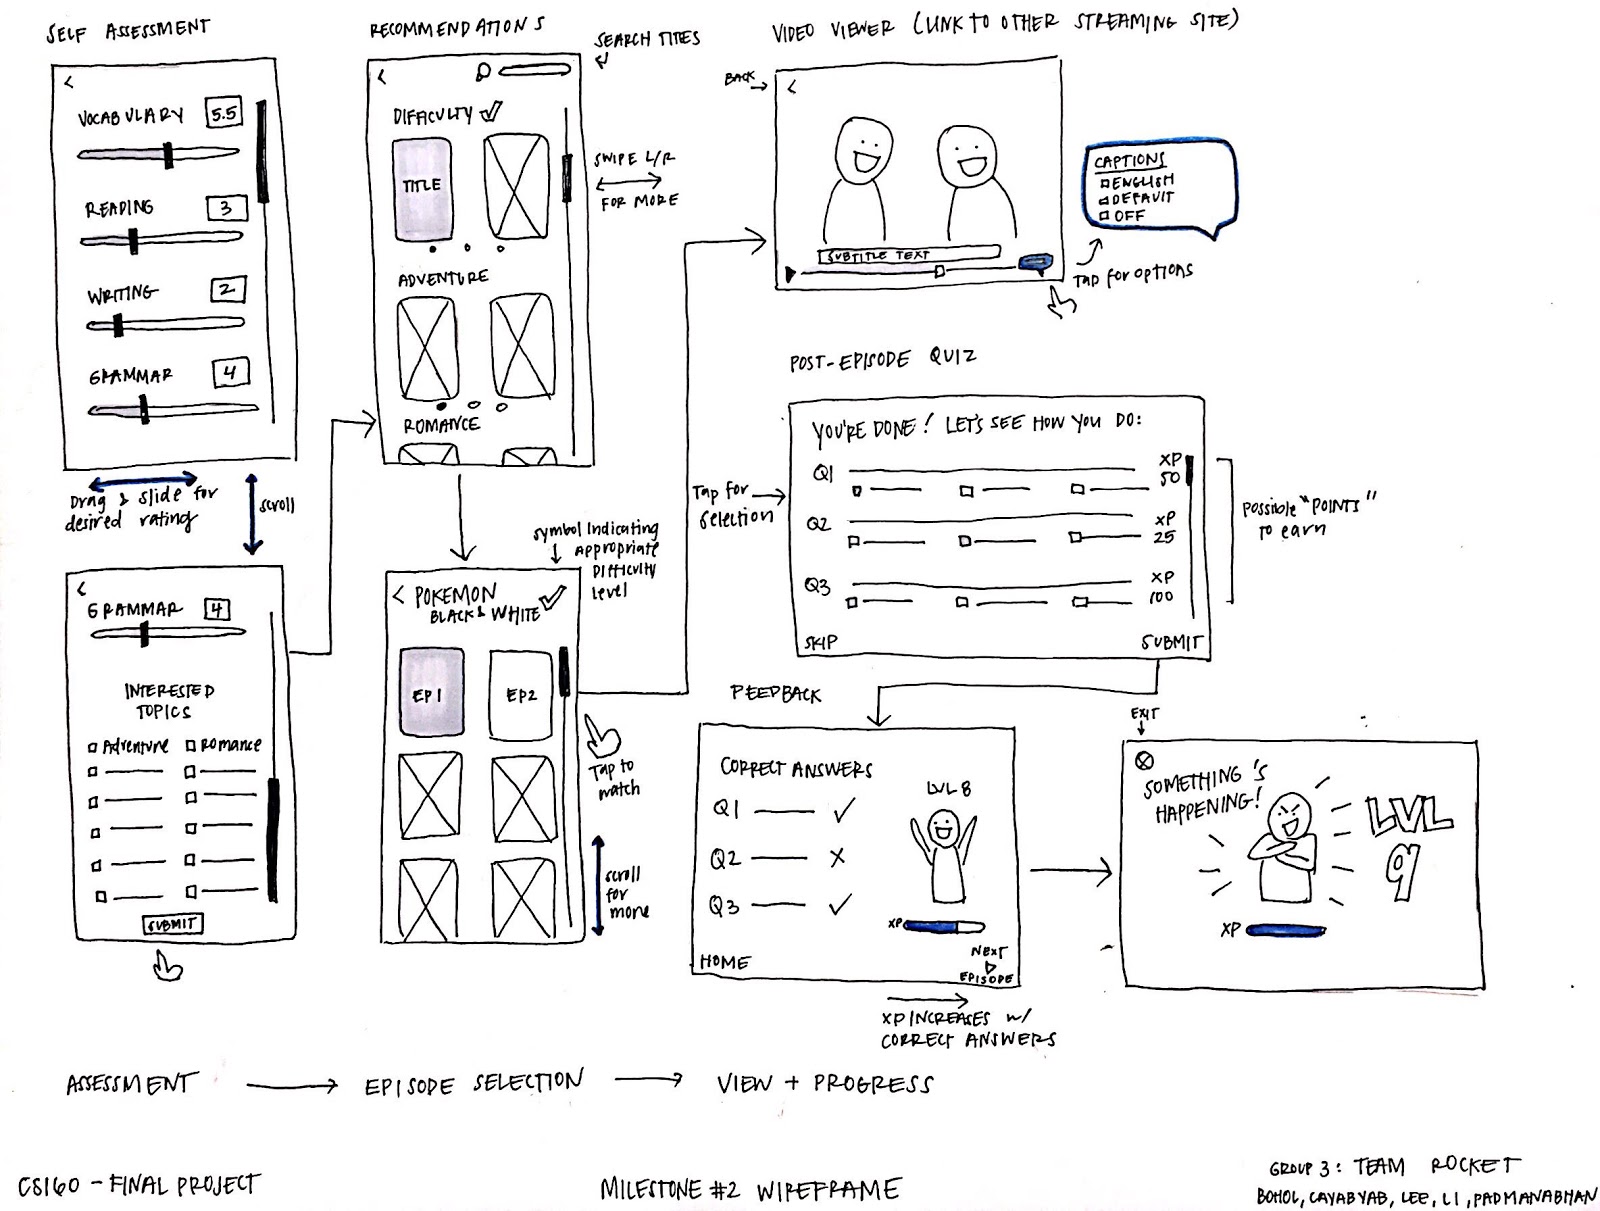 SELF ASSESSMENT
<
VOCABULARY 5.5
READING 3
WRITING 2
GRAMMAR 4
Drag & slide for
desired rating
scroll
<
GRAMMAR 4
INTERESTED
TOPICS
Adventure
Romance
SUBMIT
RECOMMENDATIONS
SEARCH TITLES
<
DIFFICULTY
TITLE
SWIPE L/R
FOR MORE
ADVENTURE
ROMANCE
symbol indicating
appropriate
DIFFICULTY
level
< POKEMON
BLACK & WHITE
EP1
EP2
Tap to
watch
scroll
for
more
VIDEO VIEWER (LINK TO OTHER STREAMING SITE)
BACK
<
SUBTITLE TEXT
CAPTIONS
ENGLISH
DEFAULT
OFF
TAP for options
POST-EPISODE QUIZ
YOU'RE DONE! LET'S SEE HOW YOU DO:
Q1
XP
50
Q2
XP
25
Q3
XP
100
SKIP
SUBMIT
Tap for
selection
possible "POINTS"
to earn
FEEDBACK
CORRECT ANSWERS
Q1 ✓
Q2 X
Q3 ✓
LVL 8
XP
HOME
NEXT
EPISODE
XP INCREASES w/
CORRECT ANSWERS
EXIT
SOMETHING'S
HAPPENING!
LVL
9
XP
ASSESSMENT → EPISODE SELECTION → VIEW + PROGRESS
CS160 - FINAL PROJECT
MILESTONE #2 WIREFRAME
GROUP 3: TEAM ROCKET
BOHOL, CAYABYAB, LEE, LI, PADMANABHAN